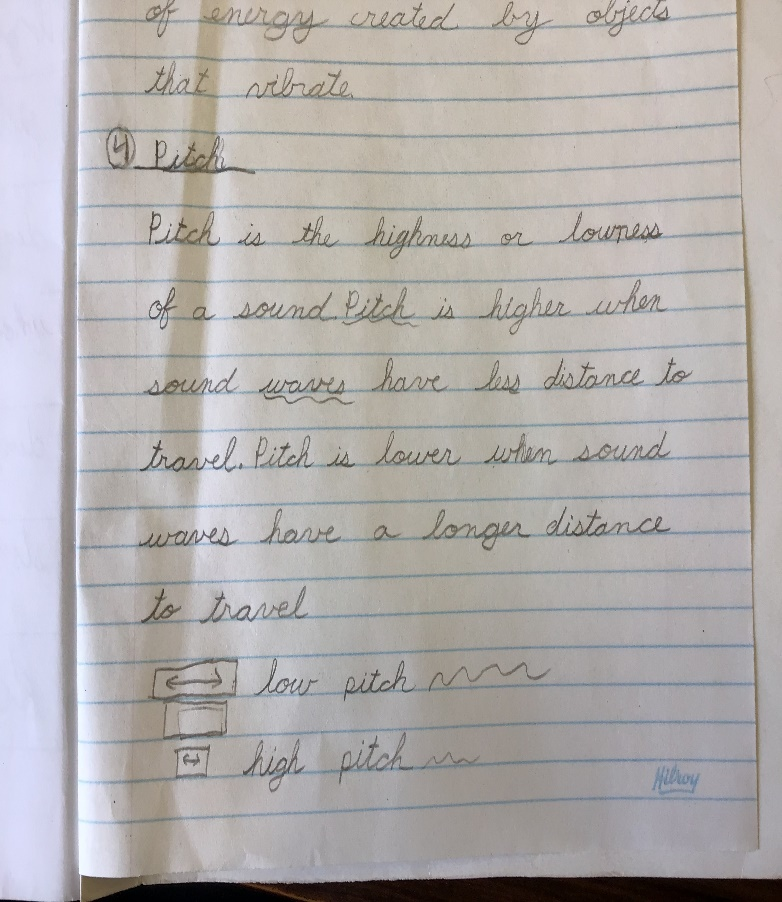 of energy created by objects
that vibrate.
4 Pitch
Pitch is the highness or lowness
of a sound. Pitch is higher when
sound waves have less distance to
travel. Pitch is lower when sound
waves have a longer distance
to travel
low pitch
high pitch
Hilroy